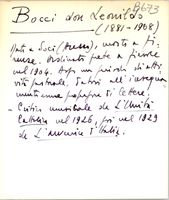 B673
Bocci don Leonildo
(1881-1968)
Nato a Soci (Arezzo), morto a Fi-
renze. Ordinato prete a Fiesole
nel 1904. Dopo un periodo di atti-
vità pastorale, si dedicò all'insegna-
mento
- Critico musicale de L'Unità
Cattolica nel 1926, poi nel 1929
de L'Avvenire d'Italia.